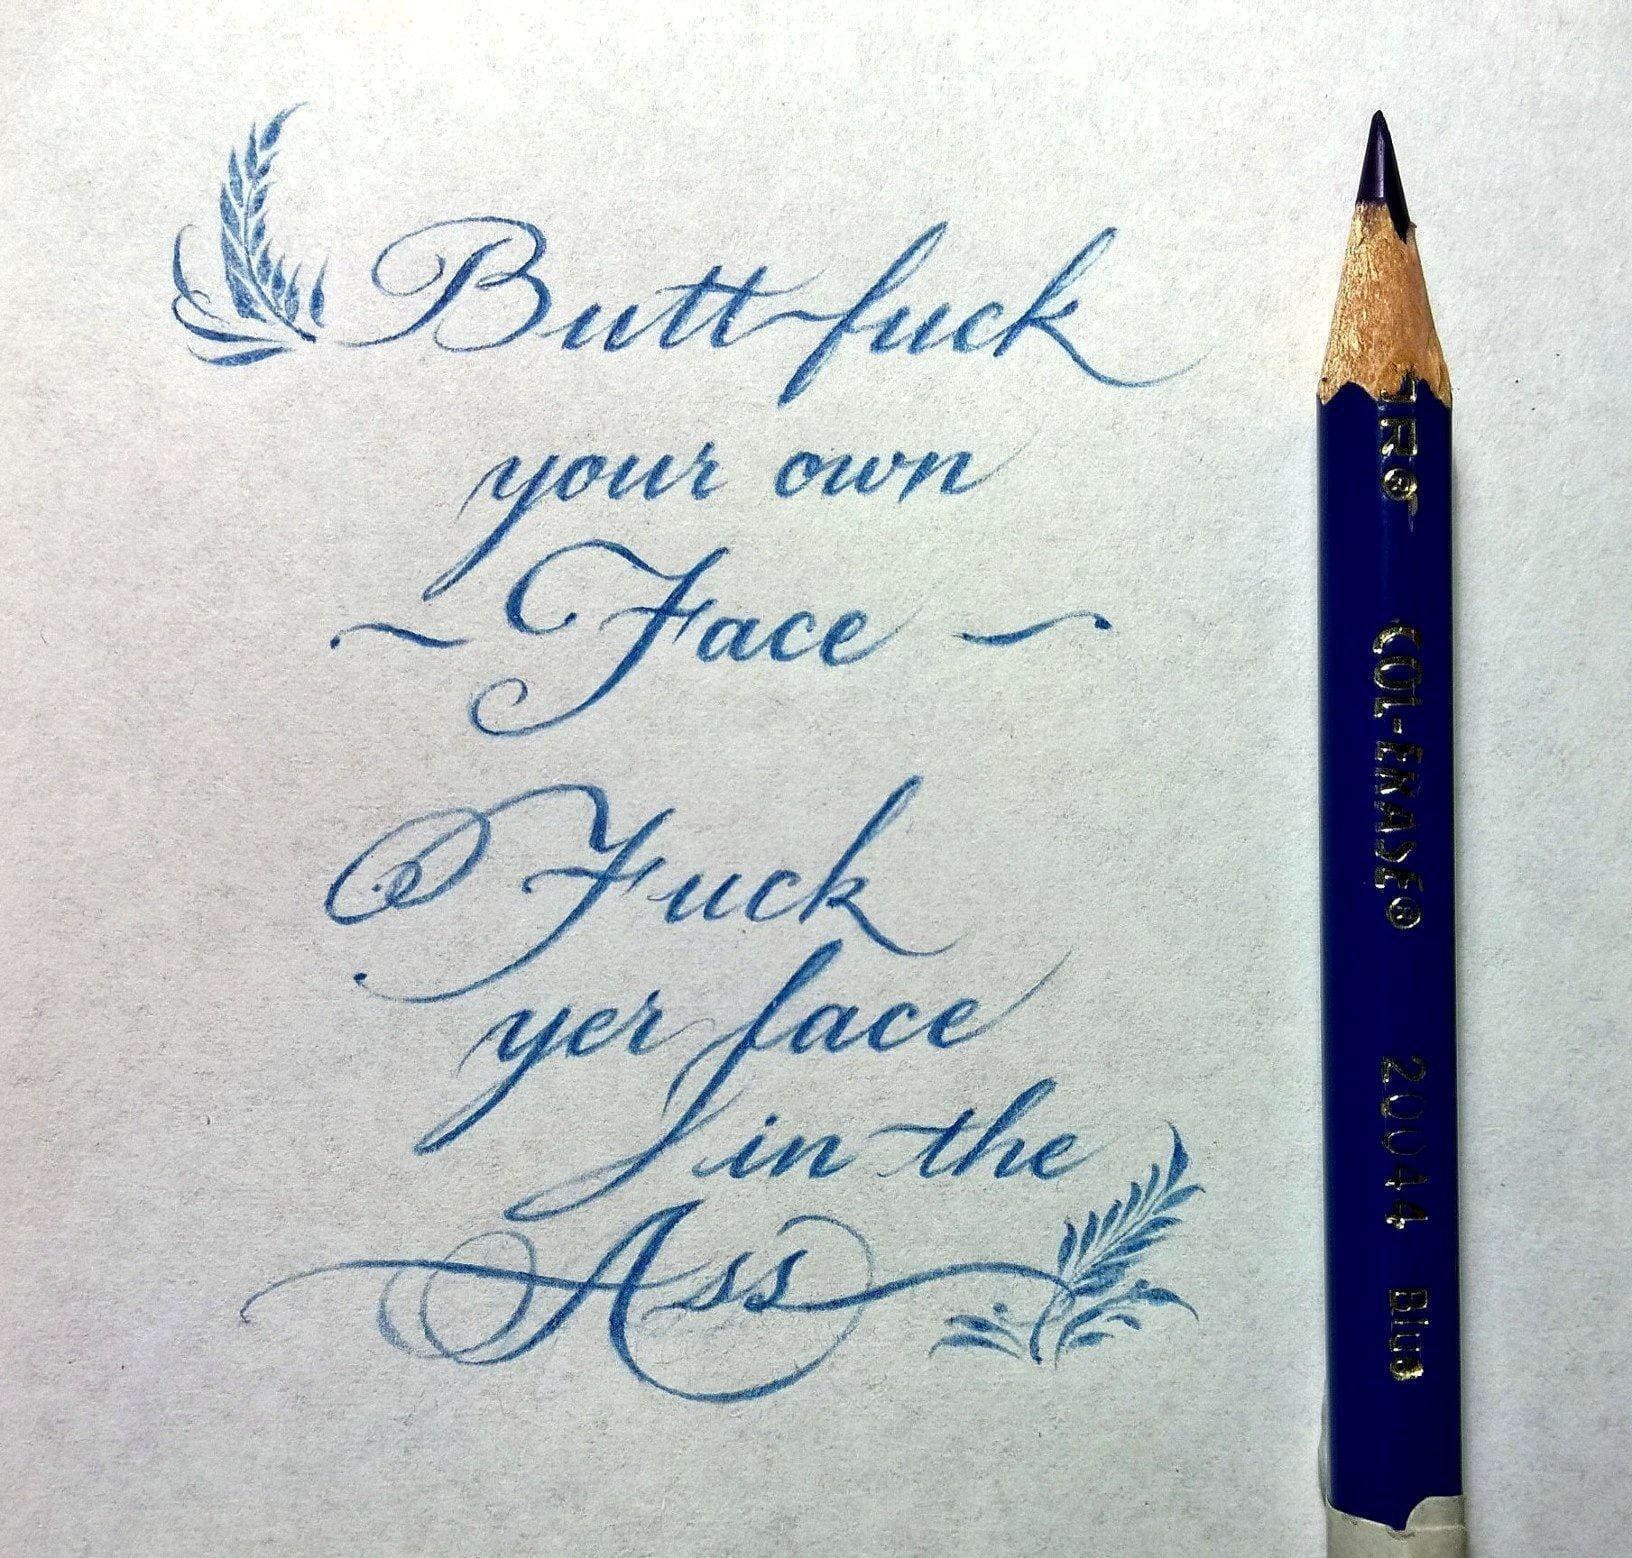 Butt-fuck
your own
Face
Fuck
yer face
in the
Ass
COL-ERASE®
20044 Blue